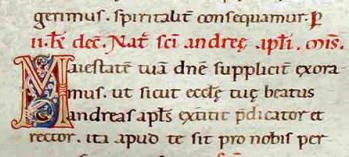 gerimus. spiritalit̄ consequamur. P̄
ii. kł. dec̄. Nat̄. sc̄i andreę apłi. om̄s.
Maiestatē tuā dn̄e supplicit̄ exora
mus. ut sicut eccłę tuę beatus
andreas apłs extitit p̄dicator et
rector. ita apud te sit pro nobis per